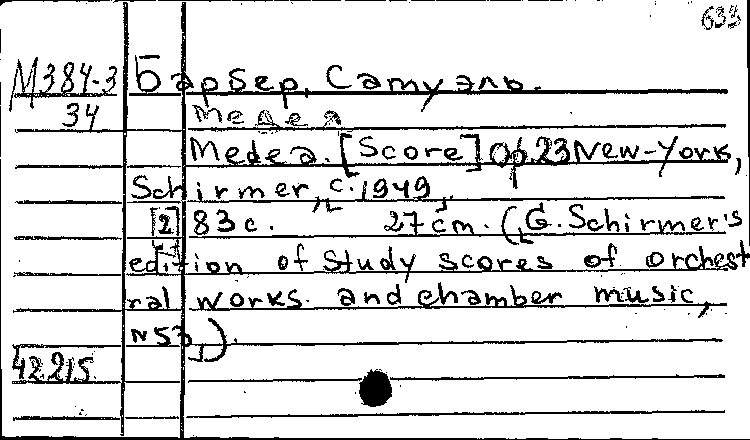 633
М384-3 Барбер, Самуэль.
34 Медея
Medea. [Score] Op. 23 New-York,
Schirmer, [c. 1949]
[2] 83 c. 27 cm. (G. Schirmer's
edition of study scores of orchest
ral works and chamber music,
N 53)
42215